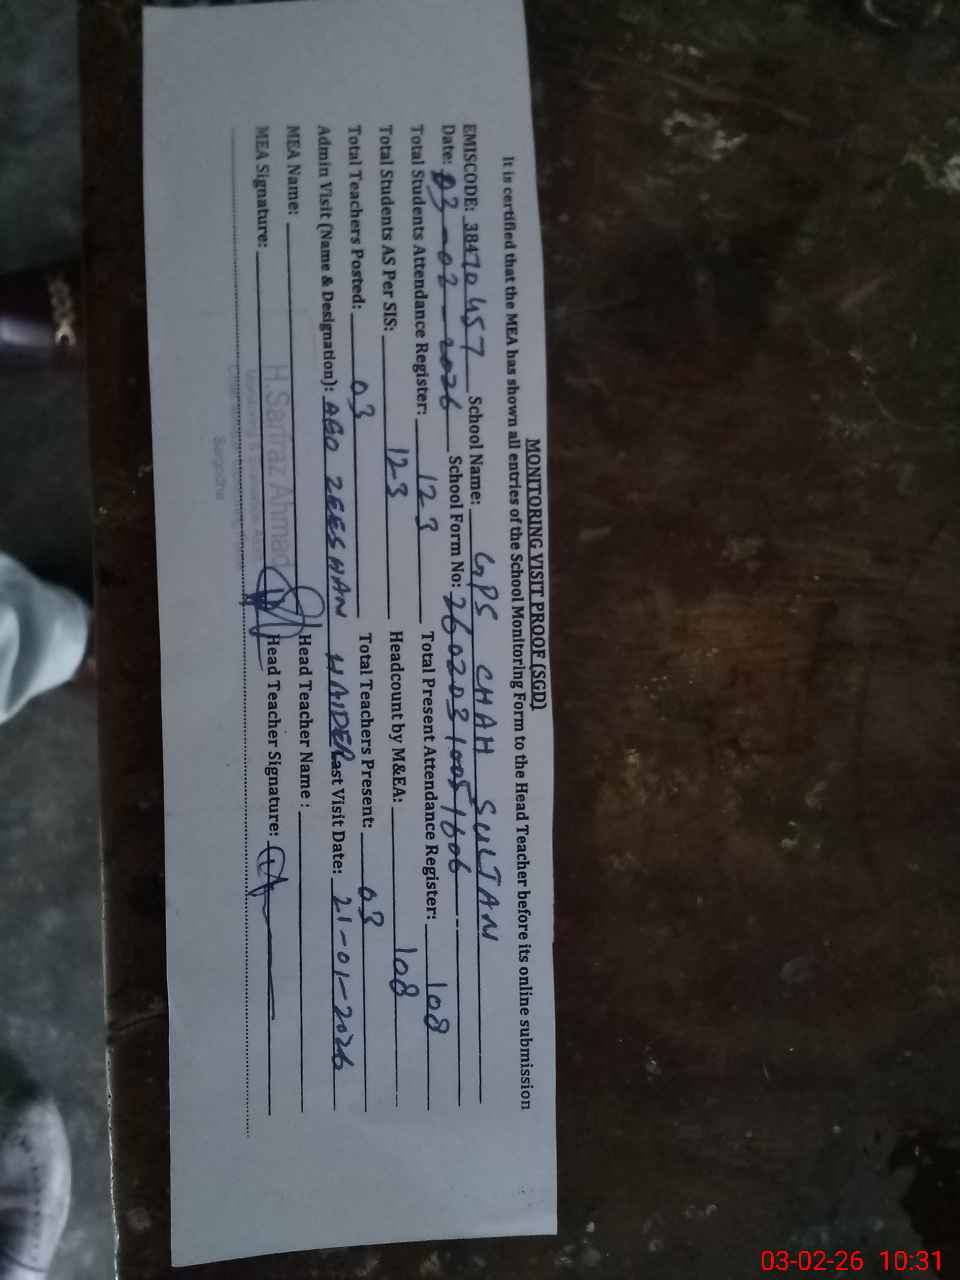 MONITORING VISIT PROOF (SGD)
It is certified that the MEA has shown all entries of the School Monitoring Form to the Head Teacher before its online submission
EMISCODE: 38470457 School Name: GPS CHAH SULTAN
Date: 03-02-2026 School Form No: 26020310051606
Total Students Attendance Register: 123 Total Present Attendance Register: 108
Total Students AS Per SIS: 123 Headcount by M&EA: 108
Total Teachers Posted: 03 Total Teachers Present: 03
Admin Visit (Name & Designation): AEO ZEESHAN HAIDER Last Visit Date: 21-01-2026
MEA Name: Head Teacher Name :
H.Sarfraz Ahmad
MEA Signature: Head Teacher Signature:
Sargodha
03-02-26 10:31